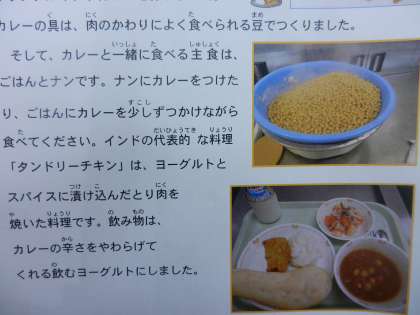 カレーの具は、肉のかわりによく食べられる豆でつくりました。
そして、カレーと一緒に食べる主食は、
ごはんとナンです。ナンにカレーをつけた
り、ごはんにカレーを少しずつかけながら
食べてください。インドの代表的な料理
「タンドリーチキン」は、ヨーグルトと
スパイスに漬け込んだとり肉を
焼いた料理です。飲み物は、
カレーの辛さをやわらげて
くれる飲むヨーグルトにしました。